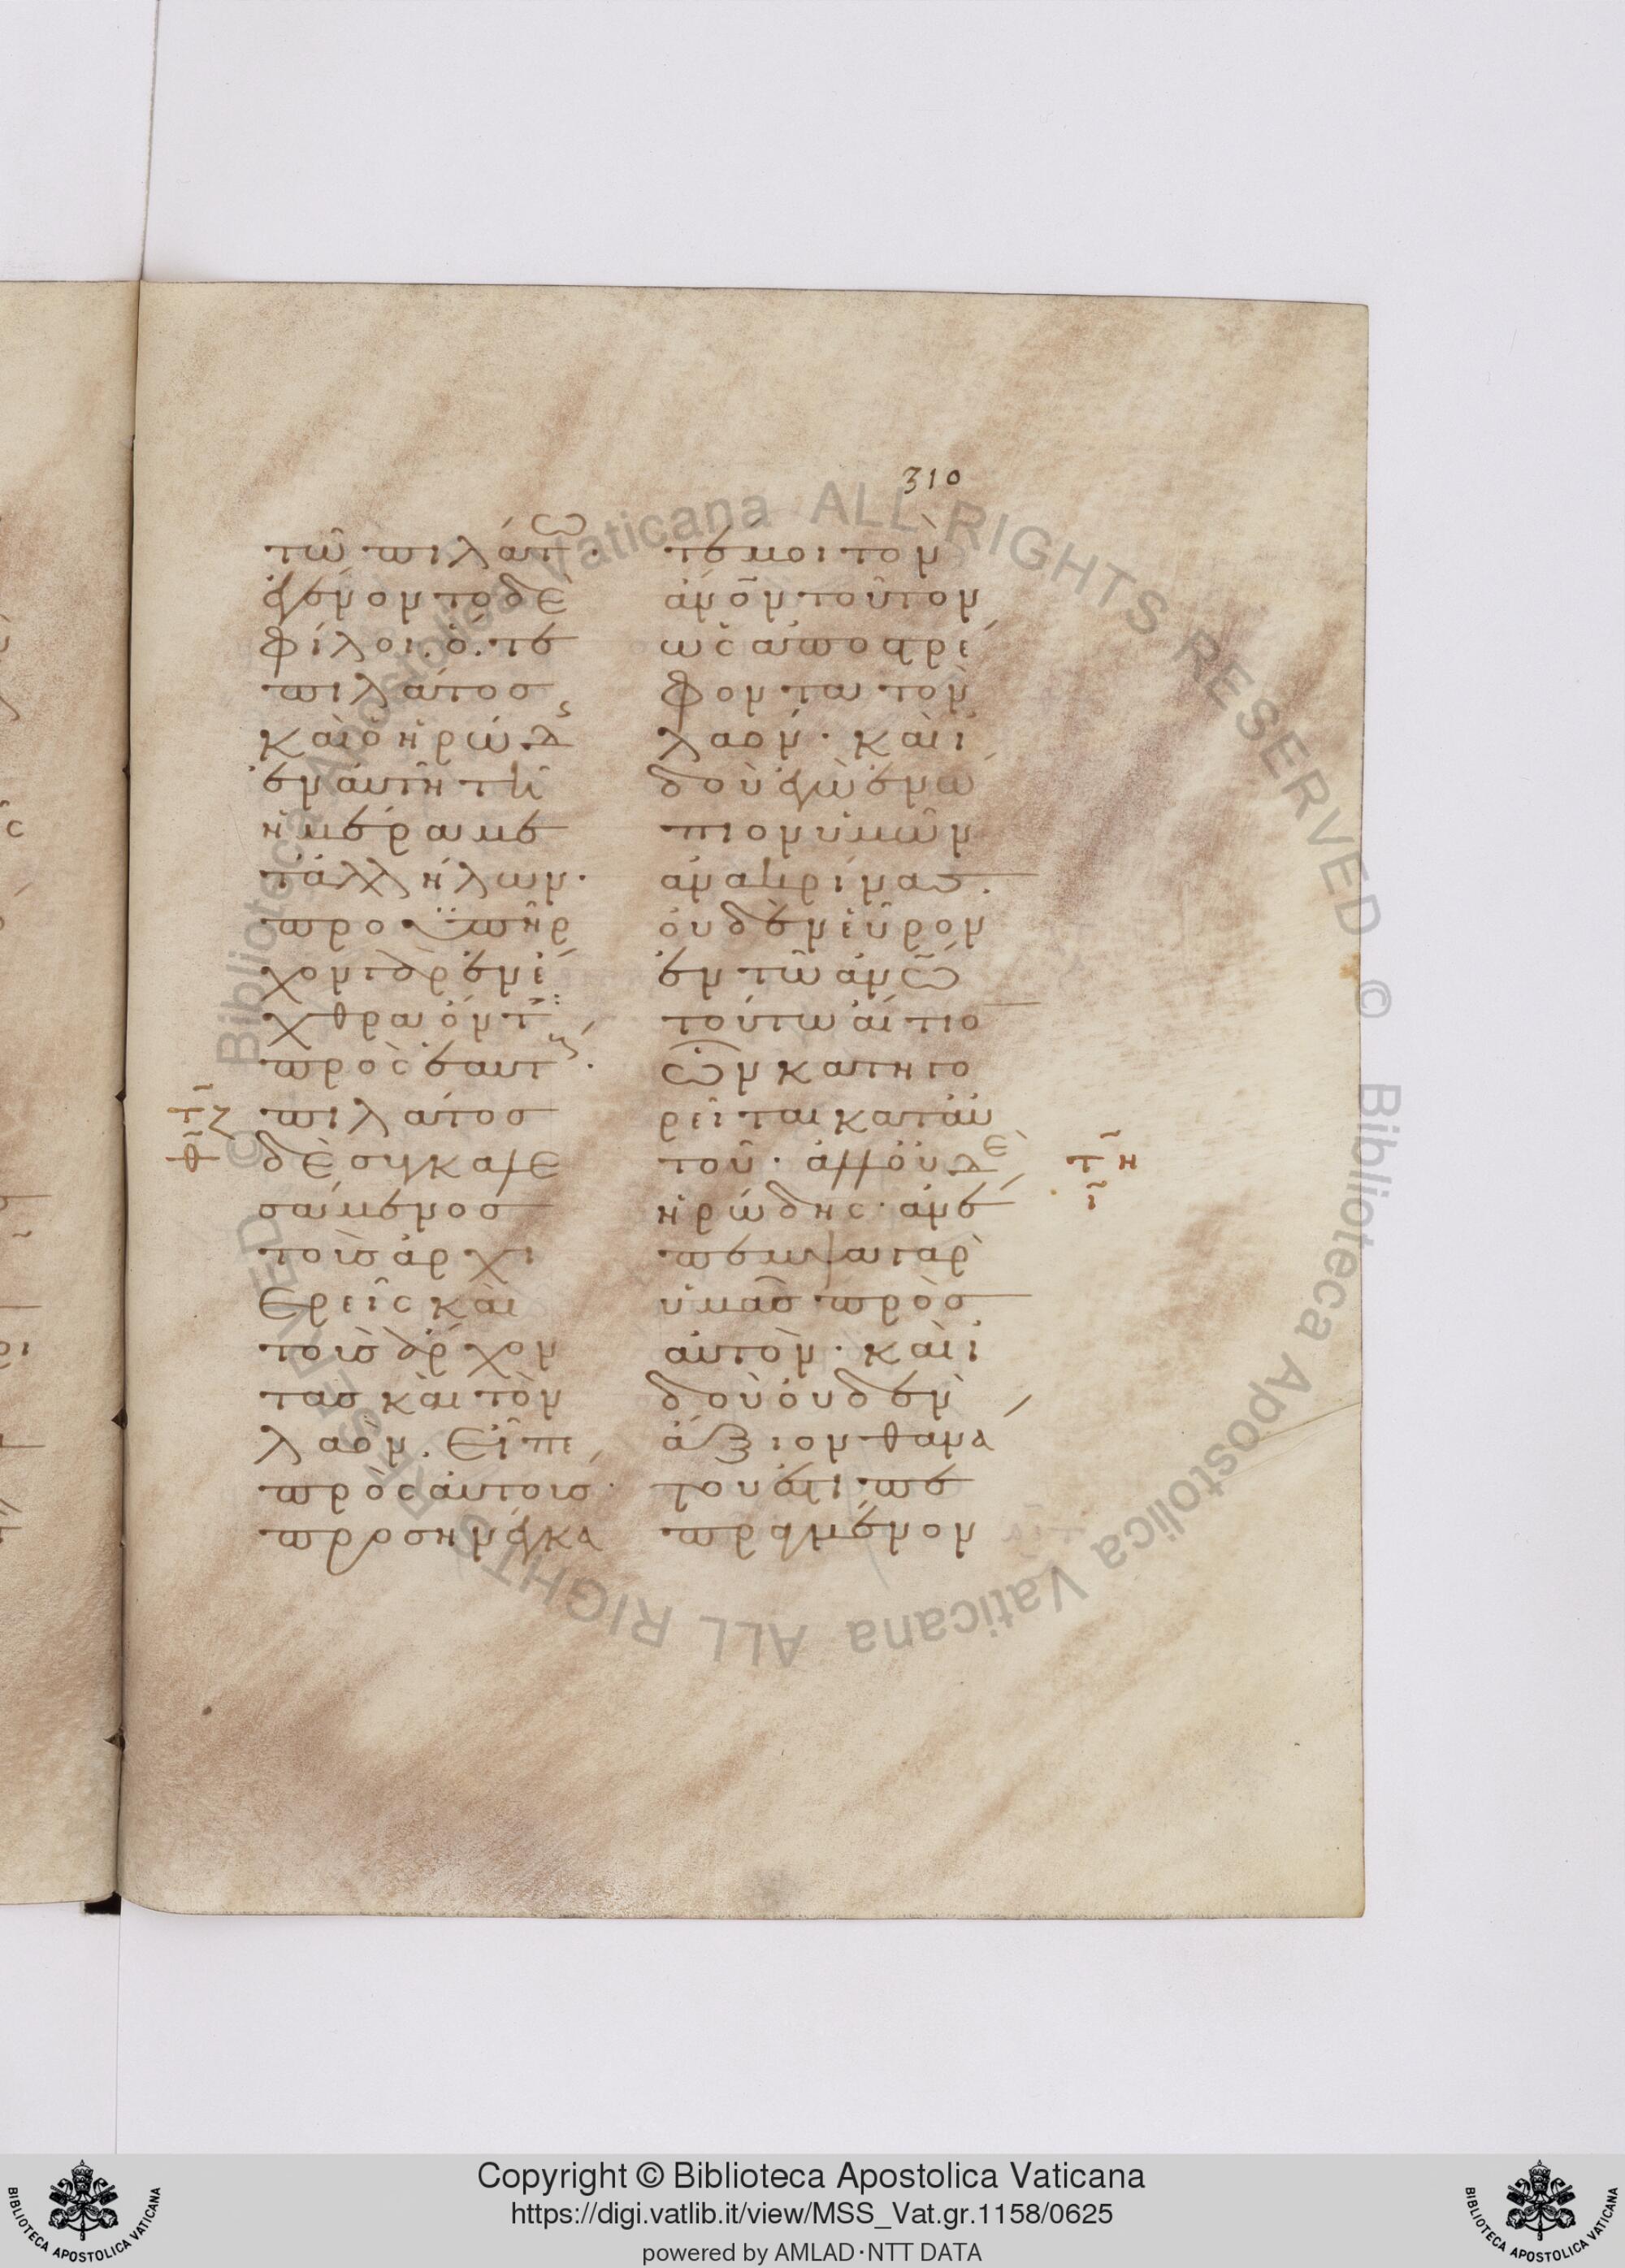 310
τῶ πιλάτω·
ἐγένοντο δὲ
φίλοι. ὅ. τε
πιλάτος
καὶ ὁ ἡρώδης
ἐν αὐτῆ τῆ
ἡμέρα με
τ ἀλλήλων·
προϋπῆρ
χον γὰρ ἐν ἔ
χθρα ὄντες
πρὸς ἑαυτούς·
τζ
πιλάτος
δὲ συγκαλε
σάμενος
τοὺς ἀρχι
ερεῖς καὶ
τοὺς ἄρχον
τας καὶ τὸν
λαὸν. εἶπε
πρὸς αὐτούς·
προσηνέγκα
τέ μοι τὸν
ἄνον τοῦτον
ὡς ἀποστρέ
φοντα τὸν
λαόν· καὶ ἰ
δοὺ ἐγὼ ἐνώ
πιον ὑμῶν
ἀνακρίνας.
οὐδὲν εὗρον
ἐν τῶ ἀνω
τούτω αἴτιο
ὧν κατηγο
ρεῖται κατ αὐ
τοῦ· ἀλλ οὐδὲ
τη
ι
ἡρώδης· ἀνέ
πεμψα γὰρ
ὑμᾶς πρὸς
αὐτὸν· καὶ ἰ
δοὺ οὐδὲν
ἄξιον θανά
του ἐστὶ πε
πραγμένον
Copyright © Biblioteca Apostolica Vaticana
https://digi.vatlib.it/view/MSS_Vat.gr.1158/0625
powered by AMLAD·NTT DATA
BIBLIOTECA APOSTOLICA VATICANA
BIBLIOTECA APOSTOLICA VATICANA
© Biblioteca Apostolica Vaticana ALL RIGHTS RESERVED © Biblioteca Apostolica Vaticana ALL RIGHTS RESERVED